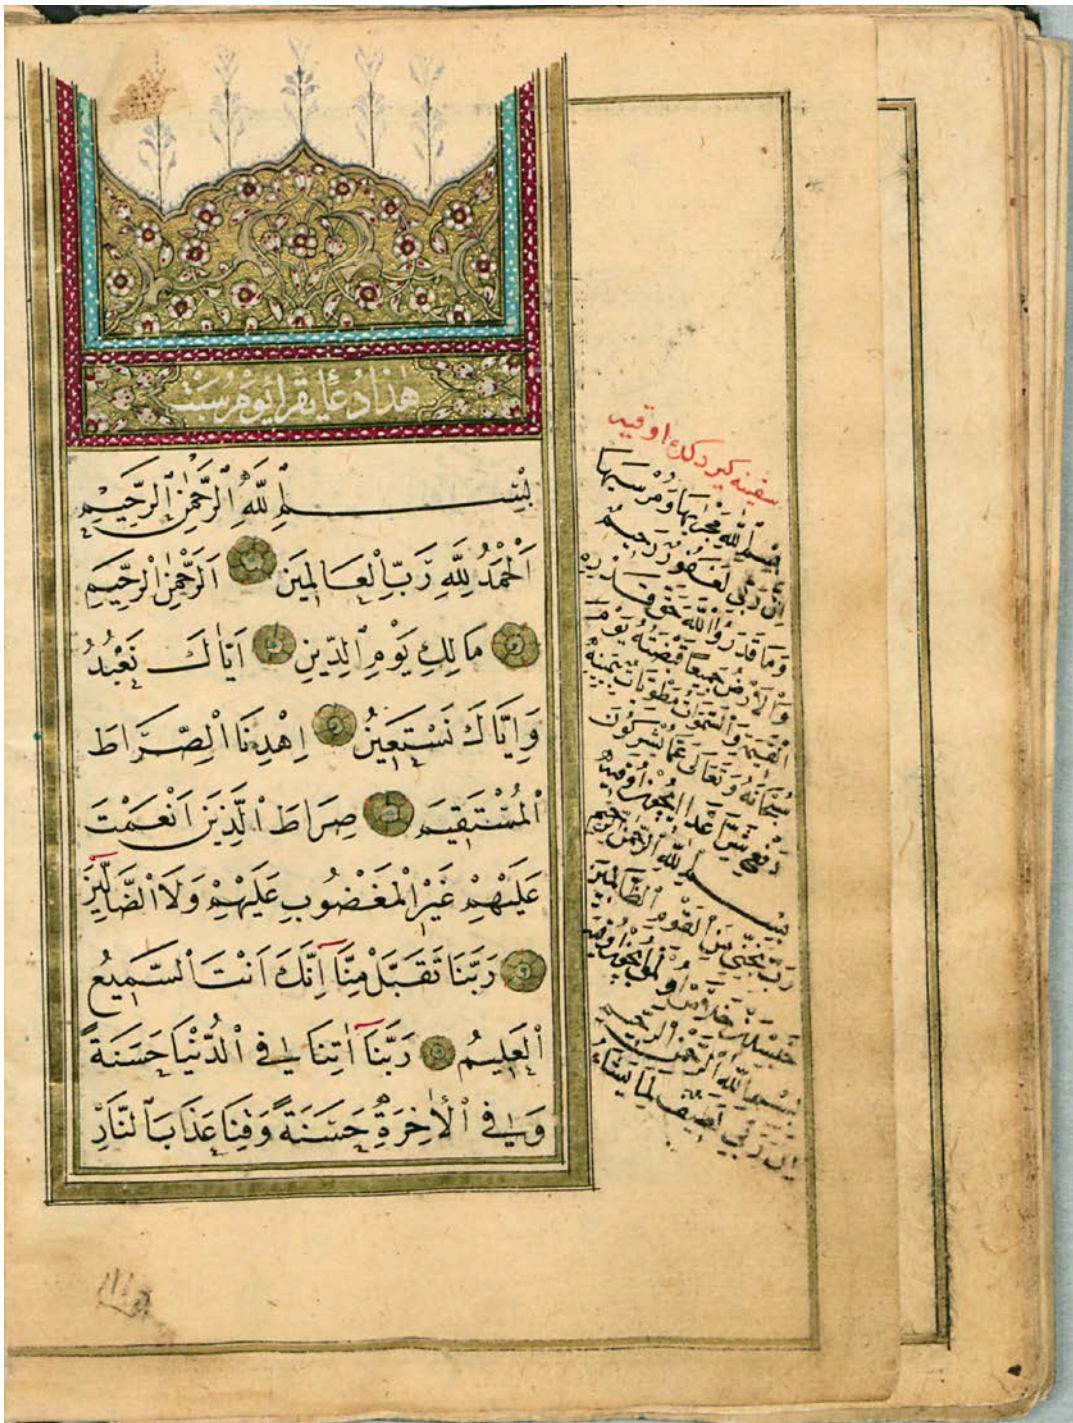 هٰذَا دُعَٓاءِ يُقْرَأُ يَوْمَ سَبْتْ
بِسْمِ اللّٰهِ الرَّحْمٰنِ الرَّحِيمِ
اَلْحَمْدُ لِلّٰهِ رَبِّ الْعَالَمِينَ اَلرَّحْمٰنِ الرَّحِيمِ
مَالِكِ يَوْمِ الدِّينِ اِيَّاكَ نَعْبُدُ
وَاِيَّاكَ نَسْتَعِينُ اِهْدِنَا الصِّرَاطَ
الْمُسْتَقِيمَ صِرَاطَ الَّذِينَ اَنْعَمْتَ
عَلَيْهِمْ غَيْرِ الْمَغْضُوبِ عَلَيْهِمْ وَلَا الضَّٓالِّينَ
رَبَّنَا تَقَبَّلْ مِنَّٓا اِنَّكَ اَنْتَ السَّمِيعُ
الْعَلِيمُ رَبَّنَٓا اٰتِنَا فِي الدُّنْيَا حَسَنَةً
وَفِي الْاٰخِرَةِ حَسَنَةً وَقِنَا عَذَابَ النَّارِ
سفينه يه كيردكده اوقيه
بِسْمِ اللّٰهِ مَجْرٰيهَا وَمُرْسٰيهَا
اِنَّ رَبِّي لَغَفُورٌ رَحِيمٌ
وَمَا قَدَرُوا اللّٰهَ حَقَّ قَدْرِهِ
وَالْاَرْضُ جَمِيعاً قَبْضَتُهُ يَوْمَ
الْقِيٰمَةِ وَالسَّمٰوَاتُ مَطْوِيَّاتٌ بِيَمِينِهِ
سُبْحَانَهُ وَتَعَالَى عَمَّا يُشْرِكُونَ
دفع شر اعدا ايچون اوقيه
بِسْمِ اللّٰهِ الرَّحْمٰنِ الرَّحِيمِ
رَبِّ نَجِّنِي مِنَ الْقَوْمِ الظَّالِمِينَ
خلاص ايچون اوقيه
بِسْمِ اللّٰهِ الرَّحْمٰنِ الرَّحِيمِ
اِنَّ رَبِّي لَطِيفٌ لِمَا يَشَٓاءُ